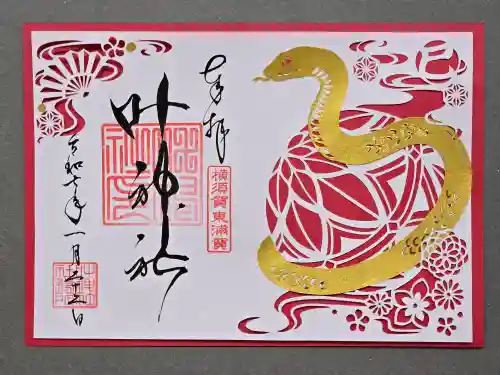 奉拝
横須賀東浦賀
叶神社
令和七年一月二十三日
巳